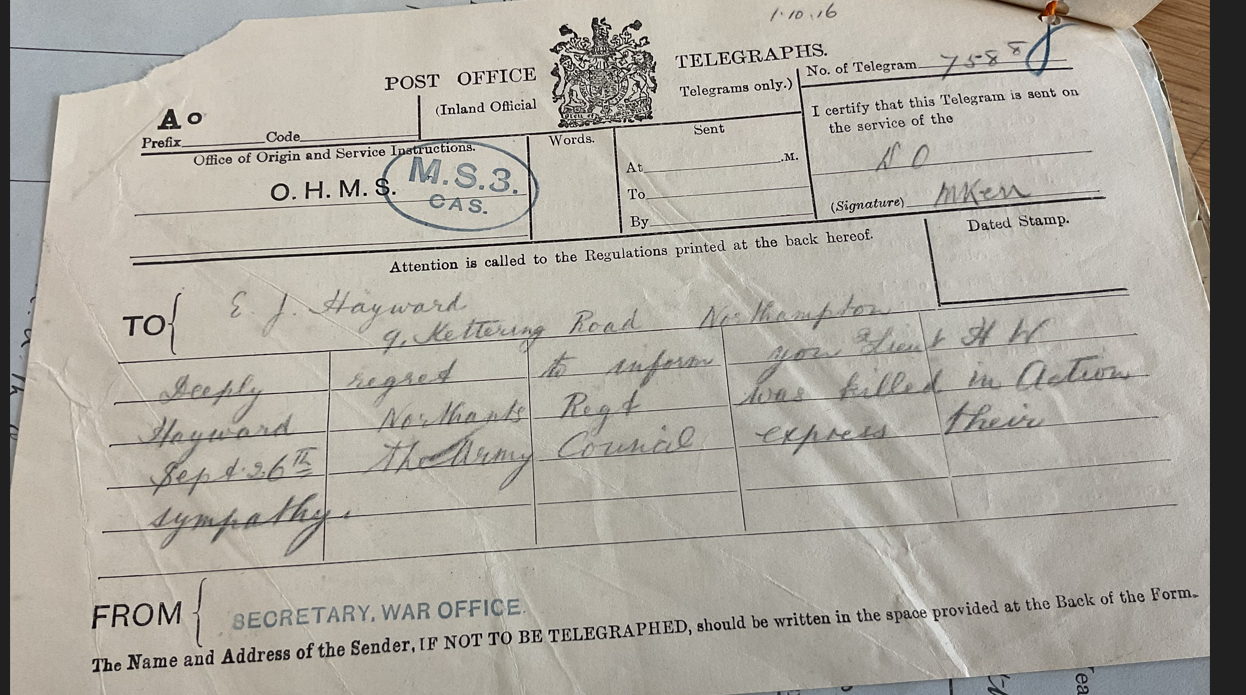 1.10.16
POST OFFICE TELEGRAPHS.
(Inland Official Telegrams only.)
No. of Telegram 7588
A o
Prefix Code
Office of Origin and Service Instructions.
O. H. M. S.
M.S.3.
CAS.
Words.
Sent
At .M.
To
By
I certify that this Telegram is sent on
the service of the
(Signature)
Attention is called to the Regulations printed at the back hereof.
Dated Stamp.
TO
E. J. Hayward
9, Kettering Road Northampton
Deeply regret to inform you Lieut H W
Hayward Northants Regt was killed in Action
Sept 26th The Army Council express their
sympathy.
FROM
SECRETARY, WAR OFFICE.
The Name and Address of the Sender, IF NOT TO BE TELEGRAPHED, should be written in the space provided at the Back of the Form.